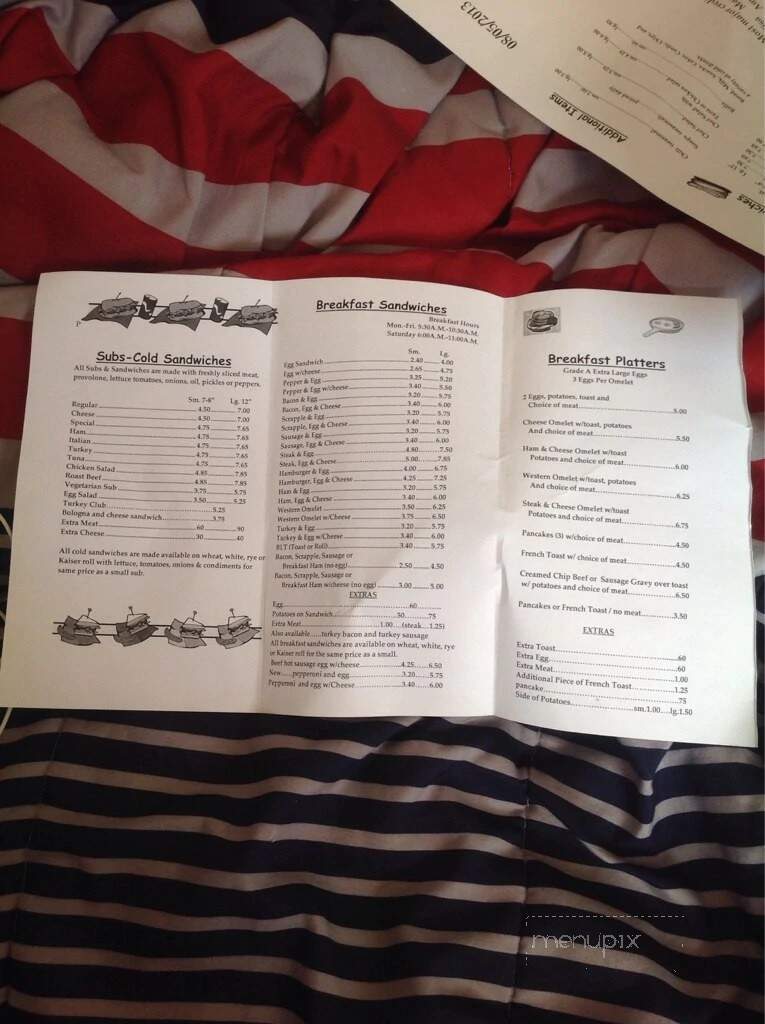 08/05/2013
Most major
Additional Items
P
Subs-Cold Sandwiches
All Subs & Sandwiches are made with freshly sliced meat,
provolone, lettuce tomatoes, onions, oil, pickles or peppers.
Sm. 7-8" Lg. 12"
Regular 4.50 7.00
Cheese 4.50 7.00
Special 4.75 7.65
Ham 4.75 7.65
Italian 4.75 7.65
Turkey 4.75 7.65
Tuna 4.75 7.65
Chicken Salad 4.85 7.85
Roast Beef 4.85 7.85
Vegetarian Sub 3.75 5.75
Egg Salad 3.50 5.25
Turkey Club 5.25
Bologna and cheese sandwich 3.75
Extra Meat .60 .90
Extra Cheese .30 .40
All cold sandwiches are made available on wheat, white, rye or
Kaiser roll with lettuce, tomatoes, onions & condiments for
same price as a small sub.
Breakfast Sandwiches
Breakfast Hours
Mon.-Fri. 5:30A.M.-10:30A.M.
Saturday 6:00A.M.-11:00A.M.
Sm. Lg.
Egg Sandwich 2.40 4.00
Egg w/cheese 2.65 4.75
Pepper & Egg 3.25 5.20
Pepper & Egg w/cheese 3.40 5.50
Bacon & Egg 3.20 5.75
Bacon, Egg & Cheese 3.40 6.00
Scrapple & Egg 3.20 5.75
Scrapple, Egg & Cheese 3.40 6.00
Sausage & Egg 3.20 5.75
Sausage, Egg & Cheese 3.40 6.00
Steak & Egg 4.80 7.50
Steak, Egg & Cheese 5.00 7.85
Hamburger & Egg 4.00 6.75
Hamburger, Egg & Cheese 4.25 7.25
Ham & Egg 3.20 5.75
Ham, Egg & Cheese 3.40 6.00
Western Omelet 3.50 6.25
Western Omelet w/Cheese 3.75 6.50
Turkey & Egg 3.20 5.75
Turkey & Egg w/Cheese 3.40 6.00
BLT (Toast or Roll) 3.40 5.75
Bacon, Scrapple, Sausage or
Breakfast Ham (no egg) 2.50 4.50
Bacon, Scrapple, Sausage or
Breakfast Ham w/cheese (no egg) 3.00 5.00
EXTRAS
Egg .60
Potatoes on Sandwich .50 .75
Extra Meat 1.00 (steak 1.25)
Also available.....turkey bacon and turkey sausage
All breakfast sandwiches are available on wheat, white, rye
or Kaiser roll for the same price as a small.
Beef hot sausage egg w/cheese 4.25 6.50
New.....pepperoni and egg 3.20 5.75
Pepperoni and egg w/Cheese 3.40 6.00
Breakfast Platters
Grade A Extra Large Eggs
3 Eggs Per Omelet
2 Eggs, potatoes, toast and
Choice of meat 5.00
Cheese Omelet w/toast, potatoes
And choice of meat 5.50
Ham & Cheese Omelet w/toast
Potatoes and choice of meat 6.00
Western Omelet w/toast, potatoes
And choice of meat 6.25
Steak & Cheese Omelet w/toast
Potatoes and choice of meat 6.75
Pancakes (3) w/choice of meat 4.50
French Toast w/ choice of meat 4.50
Creamed Chip Beef or Sausage Gravy over toast
w/ potatoes and choice of meat 6.50
Pancakes or French Toast / no meat 3.50
EXTRAS
Extra Toast .60
Extra Egg .60
Extra Meat 1.00
Additional Piece of French Toast 1.25
pancake .75
Side of Potatoes sm.1.00 lg.1.50
menupix